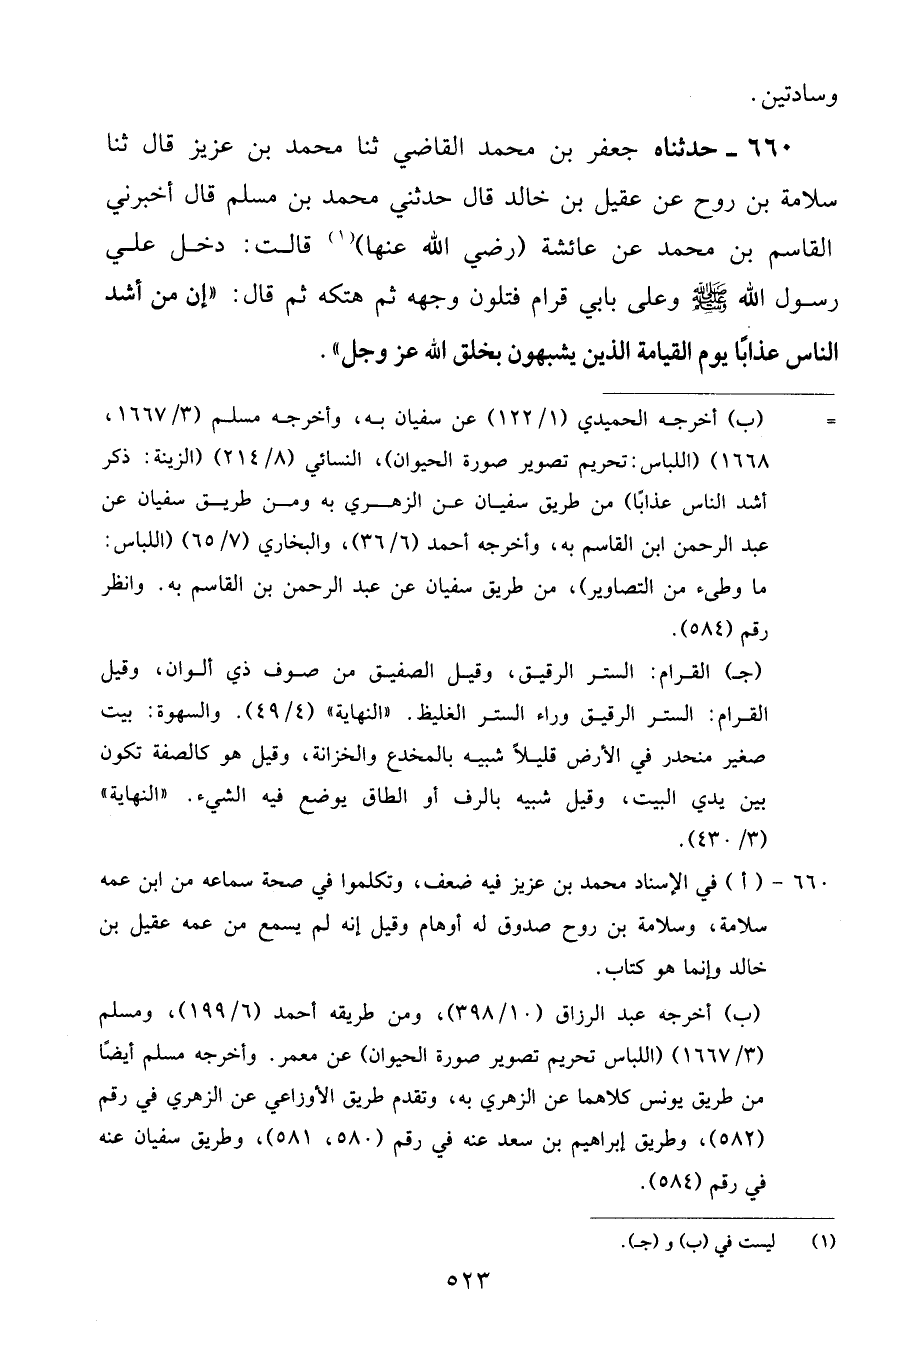 وسادتين.
٦٦٠ - حدثناه جعفر بن محمد القاضي ثنا محمد بن عزيز قال ثنا
سلامة بن روح عن عقيل بن خالد قال حدثني محمد بن مسلم قال أخبرني
القاسم بن محمد عن عائشة (رضي الله عنها)(١) قالت: دخل علي
رسول الله ﷺ وعلى بابي قرام فتلون وجهه ثم هتكه ثم قال: «إن من أشد
الناس عذابًا يوم القيامة الذين يشبهون بخلق الله عز وجل».
= (ب) أخرجه الحميدي (١/ ١٢٢) عن سفيان به، وأخرجه مسلم (٣/ ١٦٦٧،
١٦٦٨) (اللباس: تحريم تصوير صورة الحيوان)، النسائي (٨/ ٢١٤) (الزينة: ذكر
أشد الناس عذابًا) من طريق سفيان عن الزهري به ومن طريق سفيان عن
عبد الرحمن ابن القاسم به، وأخرجه أحمد (٦/ ٣٦)، والبخاري (٧/ ٦٥) (اللباس:
ما وطىء من التصاوير)، من طريق سفيان عن عبد الرحمن بن القاسم به. وانظر
رقم (٥٨٤).
(جـ) القرام: الستر الرقيق، وقيل الصفيق من صوف ذي ألوان، وقيل
القرام: الستر الرقيق وراء الستر الغليظ. «النهاية» (٤/ ٤٩). والسهوة: بيت
صغير منحدر في الأرض قليلاً شبيه بالمخدع والخزانة، وقيل هو كالصفة تكون
بين يدي البيت، وقيل شبيه بالرف أو الطاق يوضع فيه الشيء. «النهاية»
(٣/ ٤٣٠).
٦٦٠ - ( أ ) في الإسناد محمد بن عزيز فيه ضعف، وتكلموا في صحة سماعه من ابن عمه
سلامة، وسلامة بن روح صدوق له أوهام وقيل إنه لم يسمع من عمه عقيل بن
خالد وإنما هو كتاب.
(ب) أخرجه عبد الرزاق (١٠/ ٣٩٨)، ومن طريقه أحمد (٦/ ١٩٩)، ومسلم
(٣/ ١٦٦٧) (اللباس تحريم تصوير صورة الحيوان) عن معمر. وأخرجه مسلم أيضًا
من طريق يونس كلاهما عن الزهري به، وتقدم طريق الأوزاعي عن الزهري في رقم
(٥٨٢)، وطريق إبراهيم بن سعد عنه في رقم (٥٨٠، ٥٨١)، وطريق سفيان عنه
في رقم (٥٨٤).
(١) ليست في (ب) و (جـ).
٥٢٣